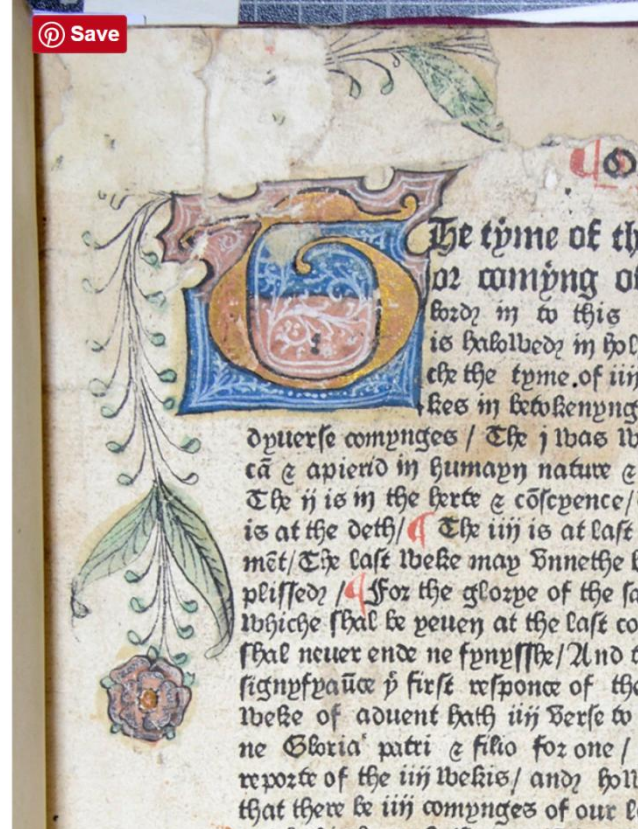 Save
The tyme of th
or comyng o
lord in to this
is halowed in hol
che the tyme.of iiij
kes in betokenyng
dyuerse comynges / The j was w
cā & apierid in humayn nature &
The ij is in the herte & cōscyence/
is at the deth/ ¶ The iiij is at last
mēt/The last weke may vnnethe
plissed /¶For the glorye of the sa
whiche shal be yeuen at the last co
shal neuer ende ne fynysshe/And t
signyfyaūce yͤ first responce of the
weke of aduent hath iiij verse to
ne Gloria patri & filio for one /
reporte of the iiij wekis/ and holl
that there be iiij comynges of our l